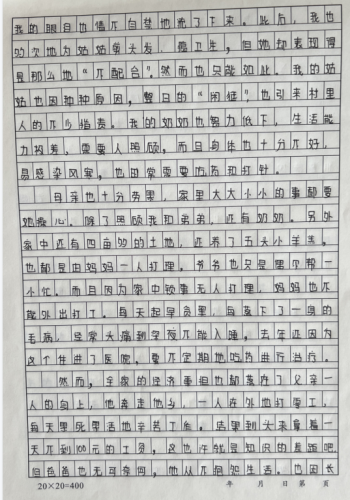 我的眼目也情不自禁地流了下来。此后，我也
多次地为姑姑剪头发，搞卫生，但她却表现得
是那么地“不配合”。然而也只能如此。我的姑
姑也因种种原因，整日的“闲逛”，也引来村里
人的不少指责。我的奶奶也智力低下，生活能
力极差，需要人照顾，而且身体也十分不好，
易感染风寒，也时常需要吃药和打针。
母亲也十分劳累，家里大大小小的事都要
她操心。除了照顾我和弟弟，还有奶奶。另外
家中还有四亩多的土地，还养了五只小羊羔，
也都是由妈妈一人打理。爷爷也只是偶尔帮一
小忙。而且因为家中琐事无人打理，妈妈也不
能外出打工。每天起早贪黑，母亲下了一身的
毛病，经常大痛到半夜不能入睡，去年还因为
这个住进了医院，要不定期地吃药进行治疗。
然而，全家的经济重担也都落在了父亲一
人的身上，他奔走他乡，一人在外地打零工，
每天累死累活地辛苦工作。结果到头来拿着一
天不到100元的工资，这也许就是知识的差距吧
但爸爸也无可奈何，他从不抱怨生活。也因长
20×20=400 年 月 日 第 页